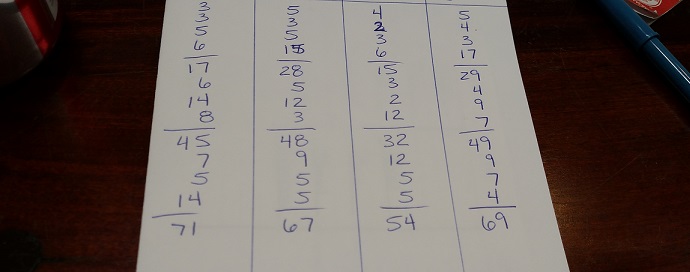 3 5 4 5
3 3 2 4
5 5 3 3
6 15 6 17
17 28 15 29
6 5 3 4
14 12 2 9
8 3 12 7
45 48 32 49
7 9 12 9
5 5 5 7
14 5 5 4
71 67 54 69